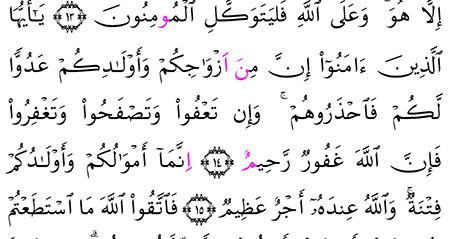 إِلَّا هُوَ ۚ وَعَلَى اللَّهِ فَلْيَتَوَكَّلِ الْمُومِنُونَ ۝١٣ يَٰٓأَيُّهَا
الَّذِينَ ءَامَنُوٓا۟ إِنَّ مِنَ اَزْوَٰجِكُمْ وَأَوْلَٰدِكُمْ عَدُوًّا
لَّكُمْ فَاحْذَرُوهُمْ ۚ وَإِن تَعْفُوا۟ وَتَصْفَحُوا۟ وَتَغْفِرُوا۟
فَإِنَّ اللَّهَ غَفُورٌ رَّحِيمٌ ۝١٤ اِنَّمَآ أَمْوَٰلُكُمْ وَأَوْلَٰدُكُمْ
فِتْنَةٌ ۚ وَاللَّهُ عِندَهُۥٓ أَجْرٌ عَظِيمٌ ۝١٥ فَاتَّقُوا۟ اللَّهَ مَا اسْتَطَعْتُمْ